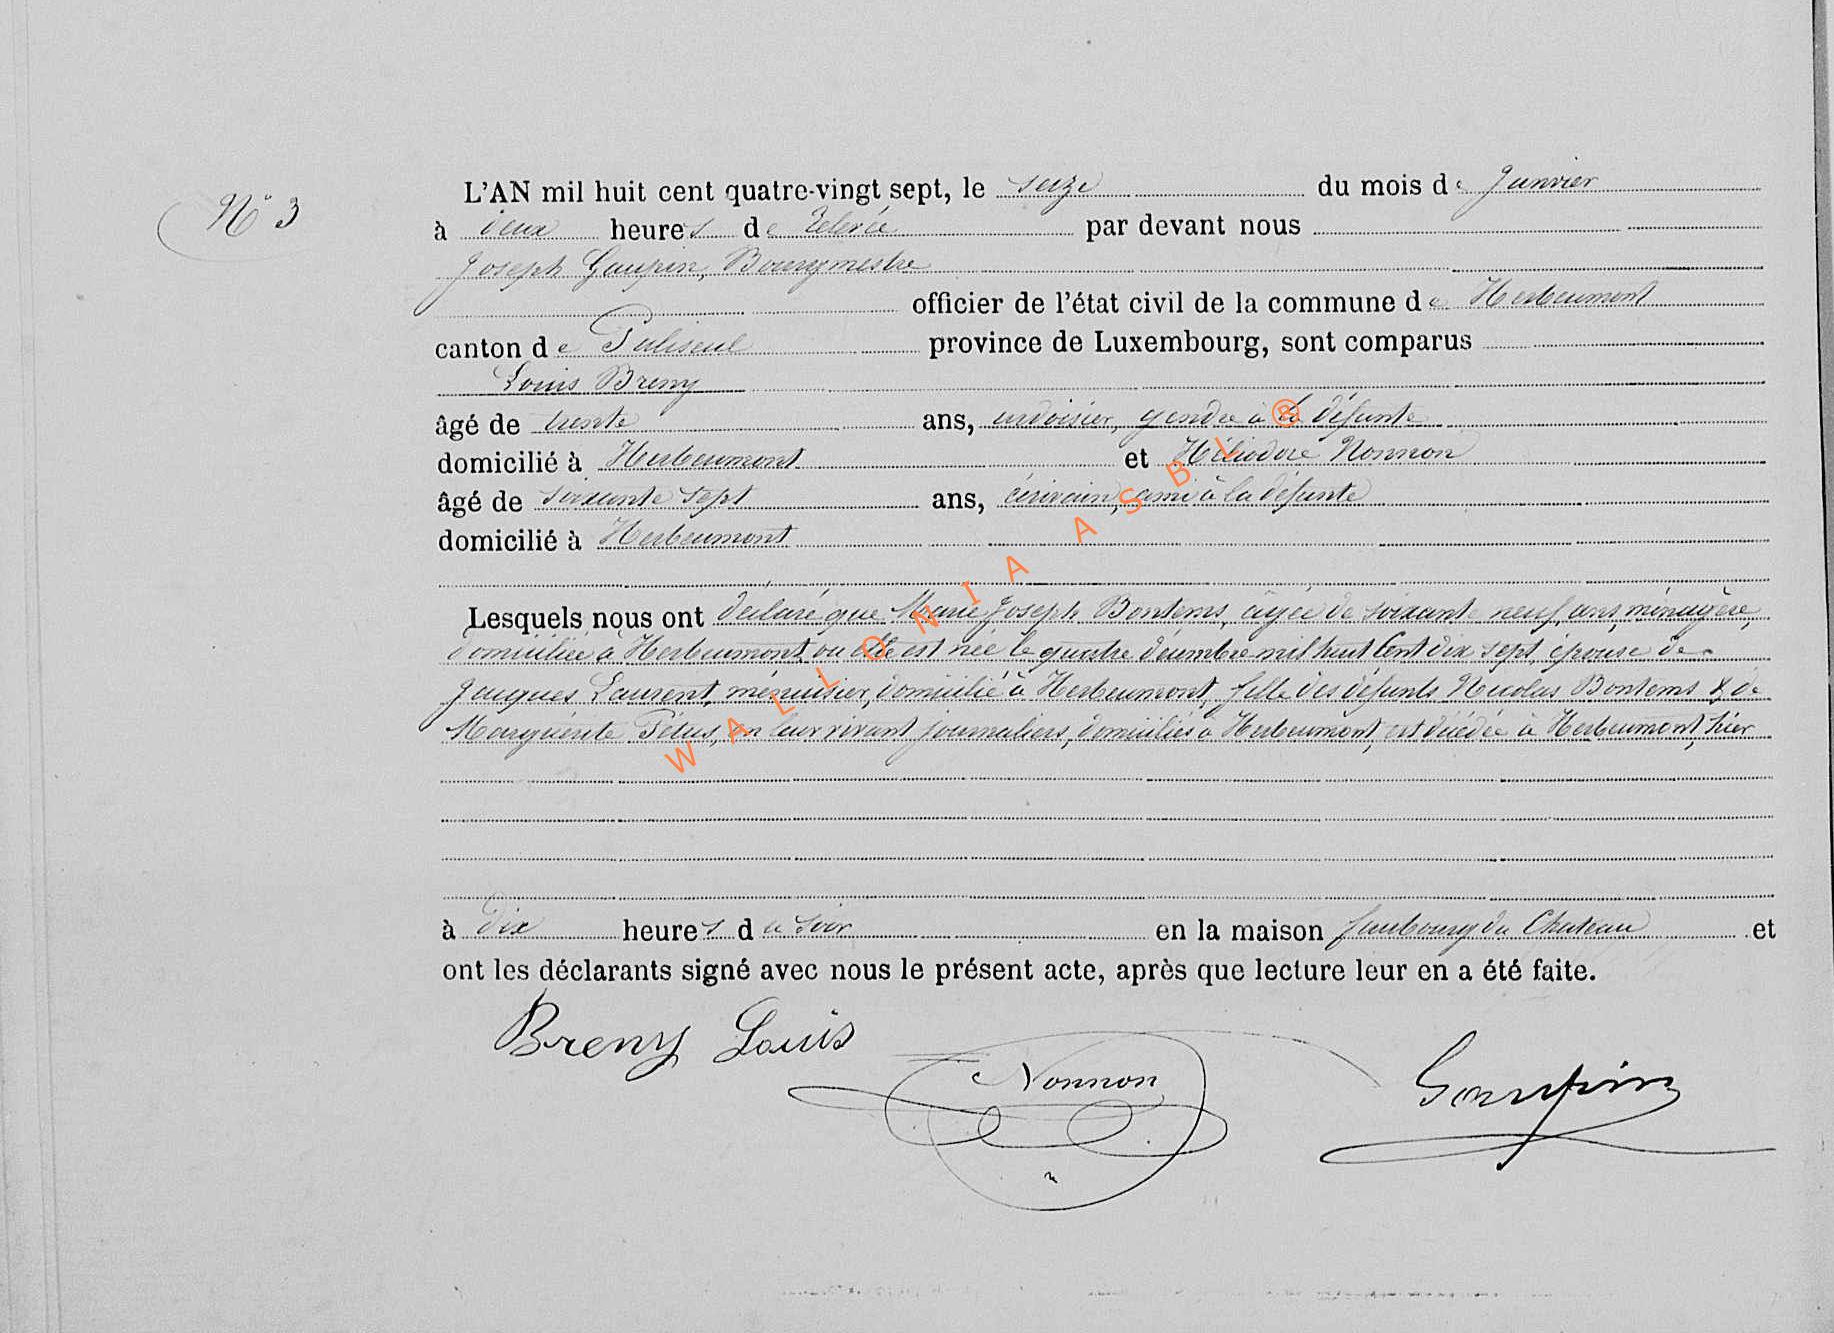 N° 3
L'AN mil huit cent quatre-vingt sept, le seize du mois de Janvier
à deux heures de Relevée par devant nous
Joseph Gaupin, Bourgmestre
officier de l'état civil de la commune de Herbeumont
canton de Paliseul province de Luxembourg, sont comparus
Louis Breny
âgé de trente ans, ardoisier, gendre à la défunte
domicilié à Herbeumont et Héliodore Nonnon
âgé de soixante sept ans, écrivain, ami à la défunte
domicilié à Herbeumont
Lesquels nous ont déclaré que Marie Joseph Bontems, âgée de soixante neuf ans, ménagère,
domiciliée à Herbeumont où elle est née le quatre décembre mil huit Cent dix sept, épouse de
Jacques Laurent, menuisier, domicilié à Herbeumont, fille des défunts Nicolas Bontems & de
Marguérite Pétus, en leur vivant journaliers, domiciliés à Herbeumont, est décédée à Herbeumont, hier
à dix heures du soir en la maison faubourg du Chateau et
ont les déclarants signé avec nous le présent acte, après que lecture leur en a été faite.
Breny Louis
Nonnon
Gaupin
WALLONIA ASBL ®